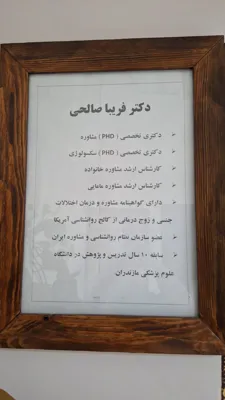 دکتر فریبا صالحی
➢ دکتری تخصصی ( PHD ) مشاوره
➢ دکتری تخصصی ( PHD ) سکسولوژی
➢ کارشناس ارشد مشاوره خانواده
➢ کارشناس ارشد مشاوره مامایی
➢ دارای گواهینامه مشاوره و درمان اختلالات
جنسی و زوج درمانی از کالج روانشناسی آمریکا
➢ عضو سازمان نظام روانشناسی و مشاوره ایران
➢ سابقه ۱۰ سال تدریس و پژوهش در دانشگاه
علوم پزشکی مازندران